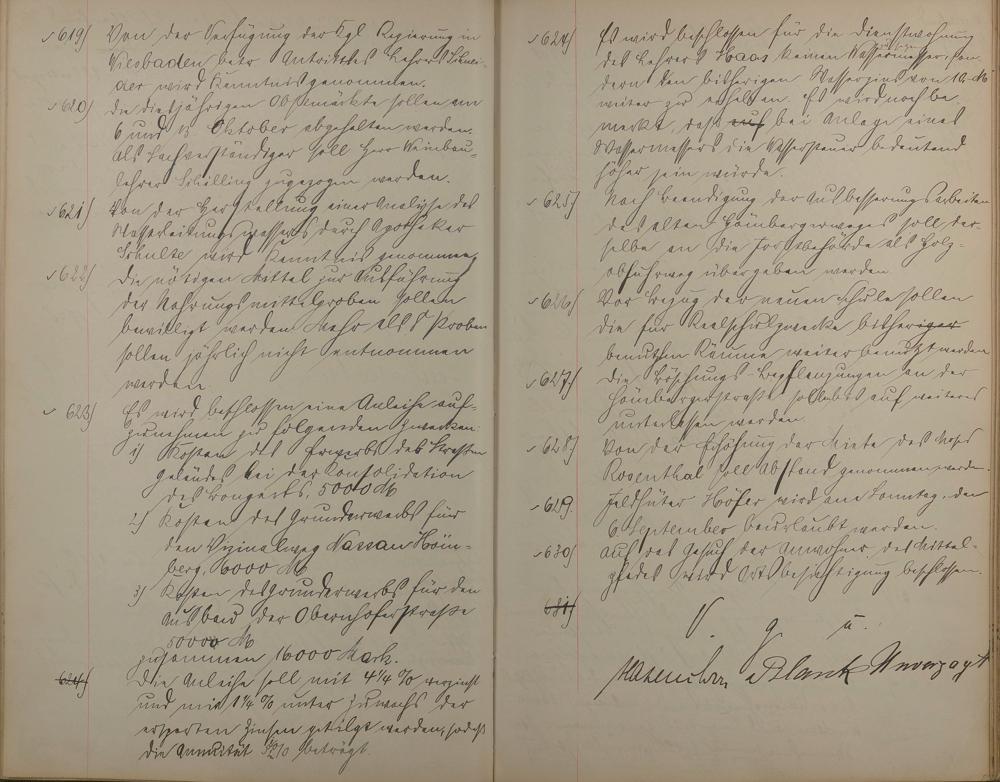 619) Von der Verfügung der Kgl Regierung in
Wiesbaden betr Antritt des Lehrers Schnei-
der wird Kenntnis genommen.
620) Die diesjährigen Obstmärkte sollen am
6 und 13 Oktober abgehalten werden.
Als Sachverständiger soll Herr Weinbau-
lehrer Schilling zugezogen werden.
621) Von der Herstellung einer Analyse des
Wasserleitungswassers durch Apotheker
Schulte wird Kenntnis genommen,
622) Die nötigen Mittel zur Ausführung
der Nahrungsmittelproben sollen
bewilligt werden Mehr als 8 Proben
sollen jährlich nicht entnommen
werden.
623) Es wird beschlossen eine Anleihe auf-
zunehmen zu folgenden Zwecken:
1) Kosten des Erwerbs des Straßen
geländes bei der Konsolidation
des Bongerts. 5000 M
2) Kosten des Grunderwerbs für
den Vizinalweg Nassau Höm-
berg. 6000 M
3) Kosten des Grunderwerbs für den
Ausbau der Obernhoferstraße
5000 M
zusammen 16000 Mark.
624) Die Anleihe soll mit 4 1/4 % verzinst
und mit 1 1/4 % unter Zuwachs der
ersparten Zinsen getilgt werden, sodaß
die Annuität beträgt.
624) Es wird beschlossen für die Dienstwohnung
des Lehrers Haas keinen Wassermesser, son-
dern den bisherigen Wasserzins von 10 M
weiter zu erheben. Es wird noch be
merkt, daß auf bei Anlage eines
Wassermessers die Wassersteuer bedeutend
höher sein würde.
625) Nach Beendigung der Ausbesserungsarbeiten
des alten Hömbergerweges soll der-
selbe an die Forstbehörde als Holz-
abfuhrweg übergeben werden
626) Vor Bezug der neuen Schule sollen
die für Realschulzwecke bisheriger
benutzten Räume weiter benutzt werden
627) Die Böschungs-Bepflanzungen an der
Hömbergerstraße sollen bis auf weiteres
unterlassen werden.
628) Von der Erhöhung der Miete des Moses
Rosenthal soll Abstand genommen werden.
629 Feldhüter Höfer wird am Sonntag, den
6 September beurlaubt werden.
630) Auf das Gesuch der Anwohner des Mittel-
pfades wird Ortsbesichtigung beschlossen.
631)
V. g. u.
Blank Unverzagt